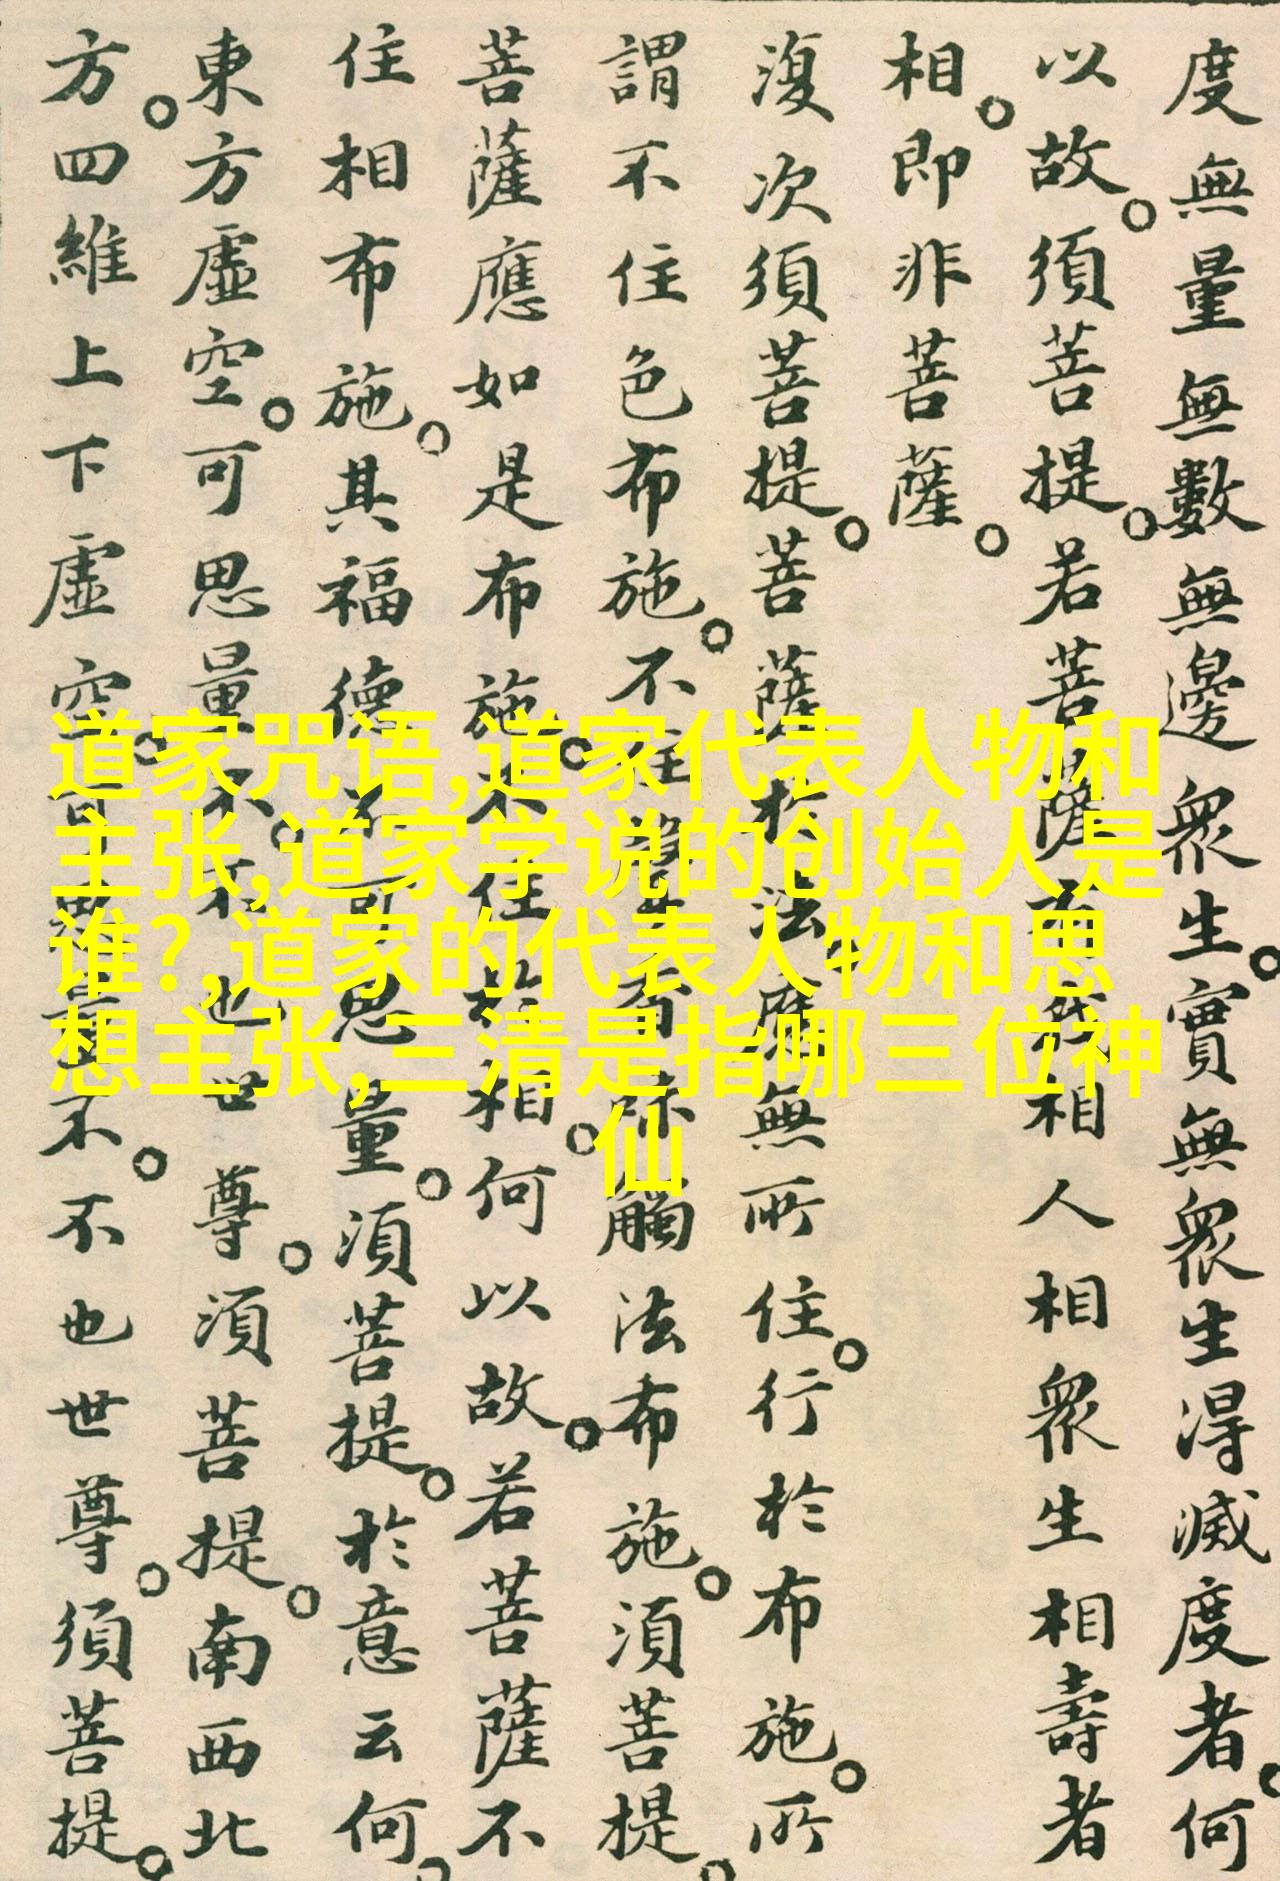 度無量無數無邊眾生。實無眾生得滅度者。何
以故。須菩提。若菩薩有我相人相眾生相壽者
相。即非菩薩。
復次須菩提。菩薩於法應無所住。行於布施。所
謂不住色布施。不住聲香味觸法布施。須菩提。
菩薩應如是布施。不住於相。何以故。若菩薩不
住相布施。其福德不可思量。須菩提。於意云何。
東方虛空。可思量不。不也世尊。須菩提。南西北
方。四維上下虛空。可思量不。不也世尊。須菩提。
道家咒语,道家代表人物和
主张,道家学说的创始人是
谁?,道家的代表人物和思
想主张,三清是指哪三位神
仙